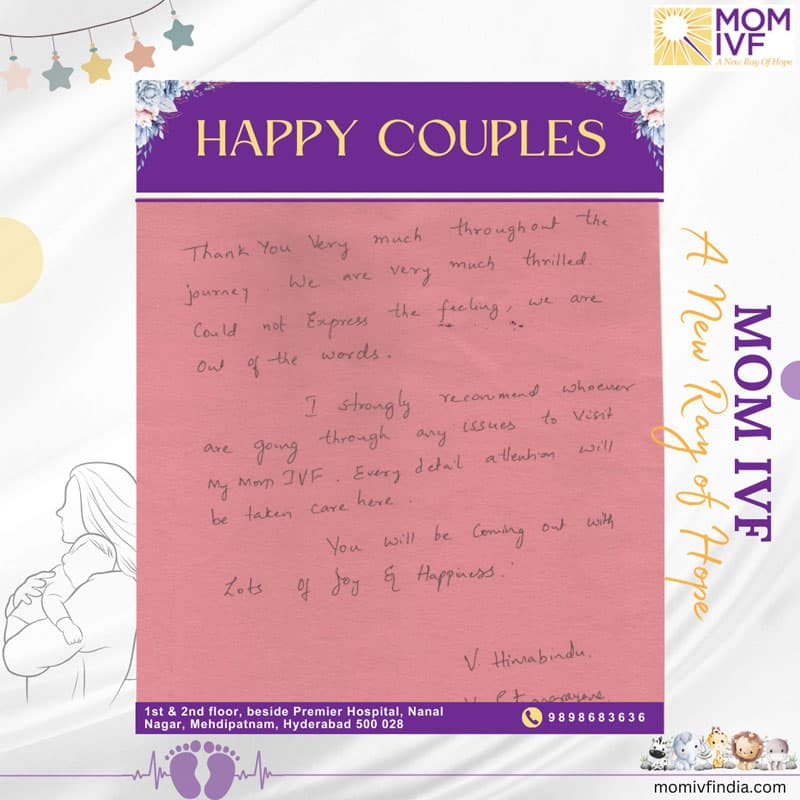 MOM
IVF
A New Ray Of Hope
HAPPY COUPLES
Thank You Very much throughout the
journey. We are very much thrilled.
Could not Express the feeling, we are
out of the words.
I strongly recommend whoever
are going through any issues to Visit
My Mom IVF. Every detail attention will
be taken care here.
You will be Coming out with
Lots of Joy & Happiness.
V. Himabindu.
MOM IVF
A New Ray of Hope
1st & 2nd floor, beside Premier Hospital, Nanal
Nagar, Mehdipatnam, Hyderabad 500 028
9898683636
momivfindia.com